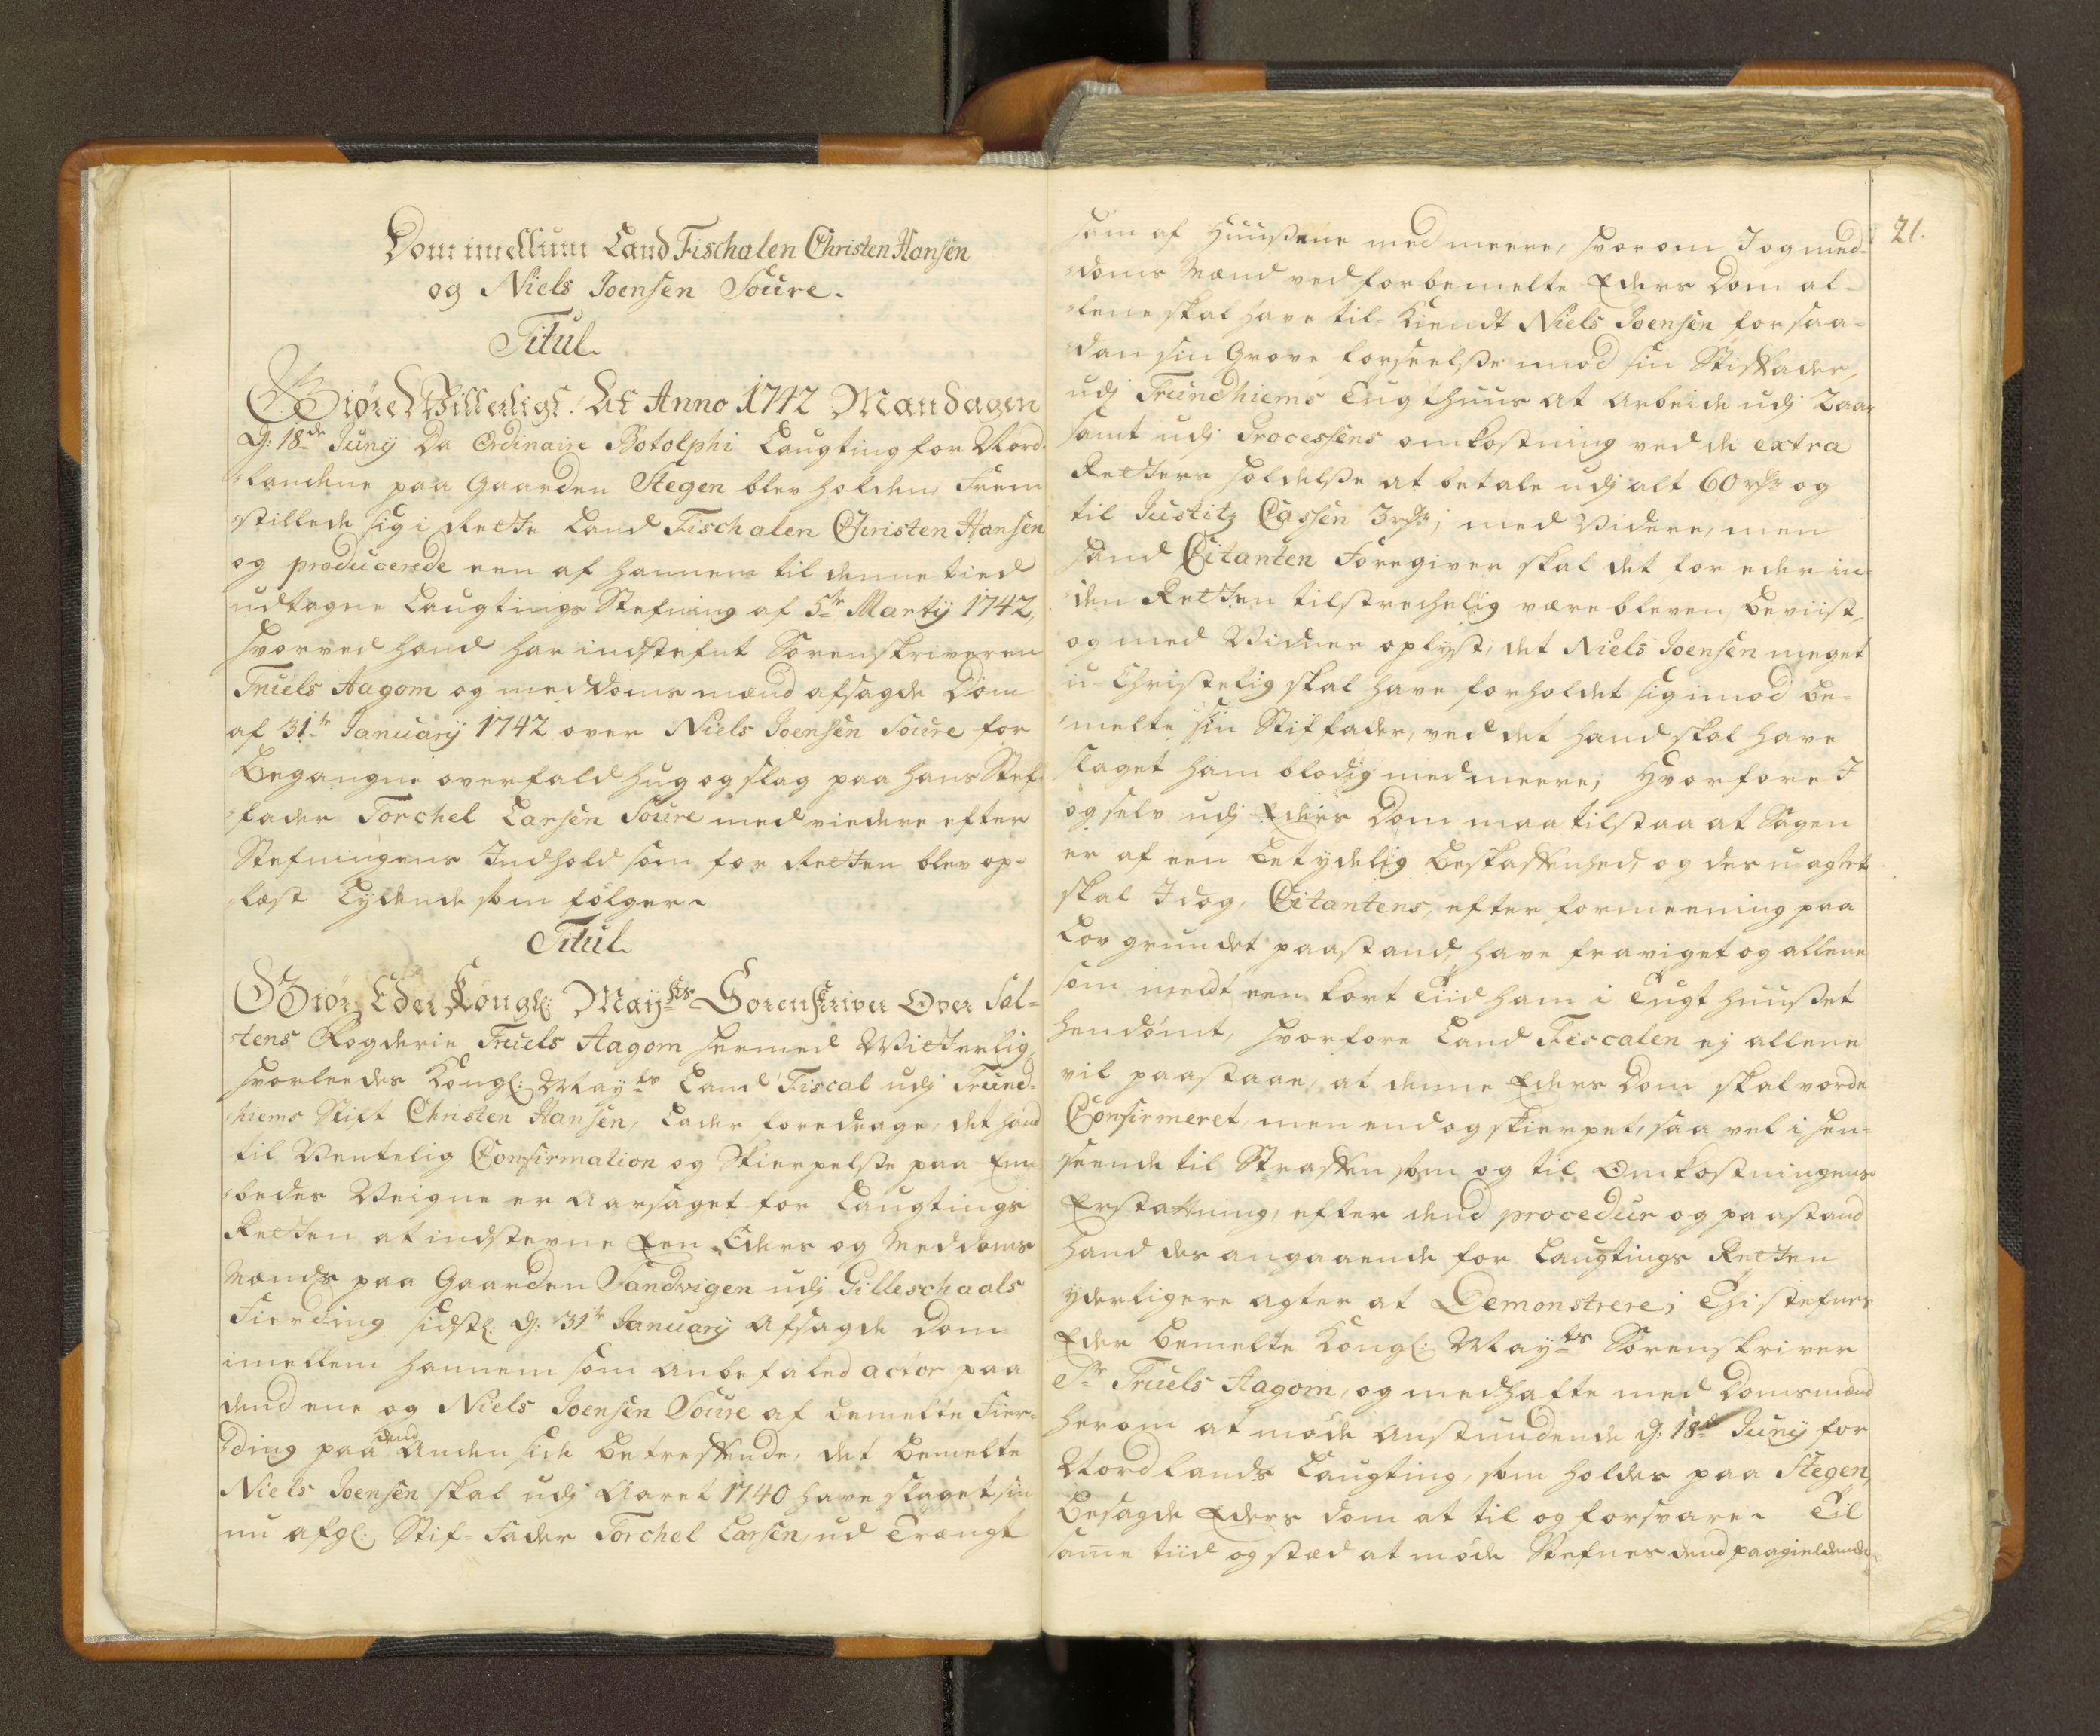 Dom imellum Land Fischalen Christen Hansen
og Niels Joensen Soure.
Titul.
Giøre Witterligt: At Anno 1742 Mandagen
d: 18de Junij Da Ordinaire Botolphi Laugting for Nord-
landene paa Gaarden Stegen blev holden, Frem
stillede sig i Rette Land Fischalen Christen Hansen
og producerede een af hannem til denne tied
udtagne Laugtings Stefning af 5te Martij 1742,
hvorved hand har indstefnt Sorenskriveren
Truels Aagom og meddoms mænd afsagde Dom
af 31te Januarij 1742 over Niels Joensen Soure for
Begangne overfald hug og slag paa hans Stef-
fader Torchel Larsen Soure med viedere efter
Stefningens Indhold som for Retten blev op-
læst Lydende som følger.
Titul.
Giør Eder Kongl: Mayts Sorenskriver Over Sal-
tens Fogderie Truels Aagom hermed Witterlig,
hvorleedes Kongl: Mayts Land Fiscal udj Trund-
hiems Stift Christen Hansen, Lader foredrage, det hand
til Ventelig Confirmation og Skierpelse paa Em-
bedes Veigne er Aarsaget for Laugtings
Retten at indstevne Een Eders og Meddoms
Mænds paa Gaarden Sandvigen udj Gilleschaals
Fierding sidstl: d: 31te Januarij Afsagde Dom
imellem hannem som Anbefaled actor paa
dend ene og Niels Joensen Soure af bemelte Fier-
ding paa dend Anden side betreffende, det bemelte
Niels Joensen skal udj Aaret 1740 have slaget sin
nu afgl: Stif-Fader Torchel Larsen, ud Trængt
ham af Huusene med meere, hvorom I og med-
doms Mænd ved forbemelte Eders Dom al-
lene skal have til Kiendt Niels Joensen for saa-
dan sin Grove forseelse imod sin Stiffader,
udj Trundhiems Tugthuus at Arbeide udj 2 aar
samt udj Processens omkostning ved de extra
Retters holdelse at betale udj alt 60 rdr og
til Justitz Cassen 3 rdr; med Videre, men
som Citanten Foregiver skal det for eder in-
den Retten tilstrechelig være bleven beviist,
og med Vidner oplyst, det Niels Joensen meget
u-Christelig skal have forholdet sig imod be-
melte sin Stiffader, ved det hand skal have
slaget ham blodig med meere; Hvorfore I
og selv udj Eders Dom maa tilstaa at Sagen
er af een betydelig beskaffenhed, og des uagtet
skal I dog, Citantens, efter formeening paa
Lov grundet paastand, have fraviget og allene
som meldt een kort Tiid ham i Tugt huuset
hendømt, hvorfore Land Fiscalen ej allene
vil paastaae, at denne Eders Dom skal vorde
Confirmeret, men endog skierpet, saa vel i hen-
seende til Straffen som og til Omkostningens
Erstatning, efter dend procedur og paastand
hand des angaaende for Laugtings Retten
yderligere agter at Demonstrere; Thi stefnes
Eder bemelte Kongl: Mayts Sorenskriver
Sr Truels Aagom, og medhafte med Domsmænd
herom at møde Anstundende d: 18de Junij for
Nordlands Laugting, som holdes paa Stegen,
besagde Eders Dom at til og forsvare. Til
same tiid og stæd at møde Stefnes dend paagieldende
21.